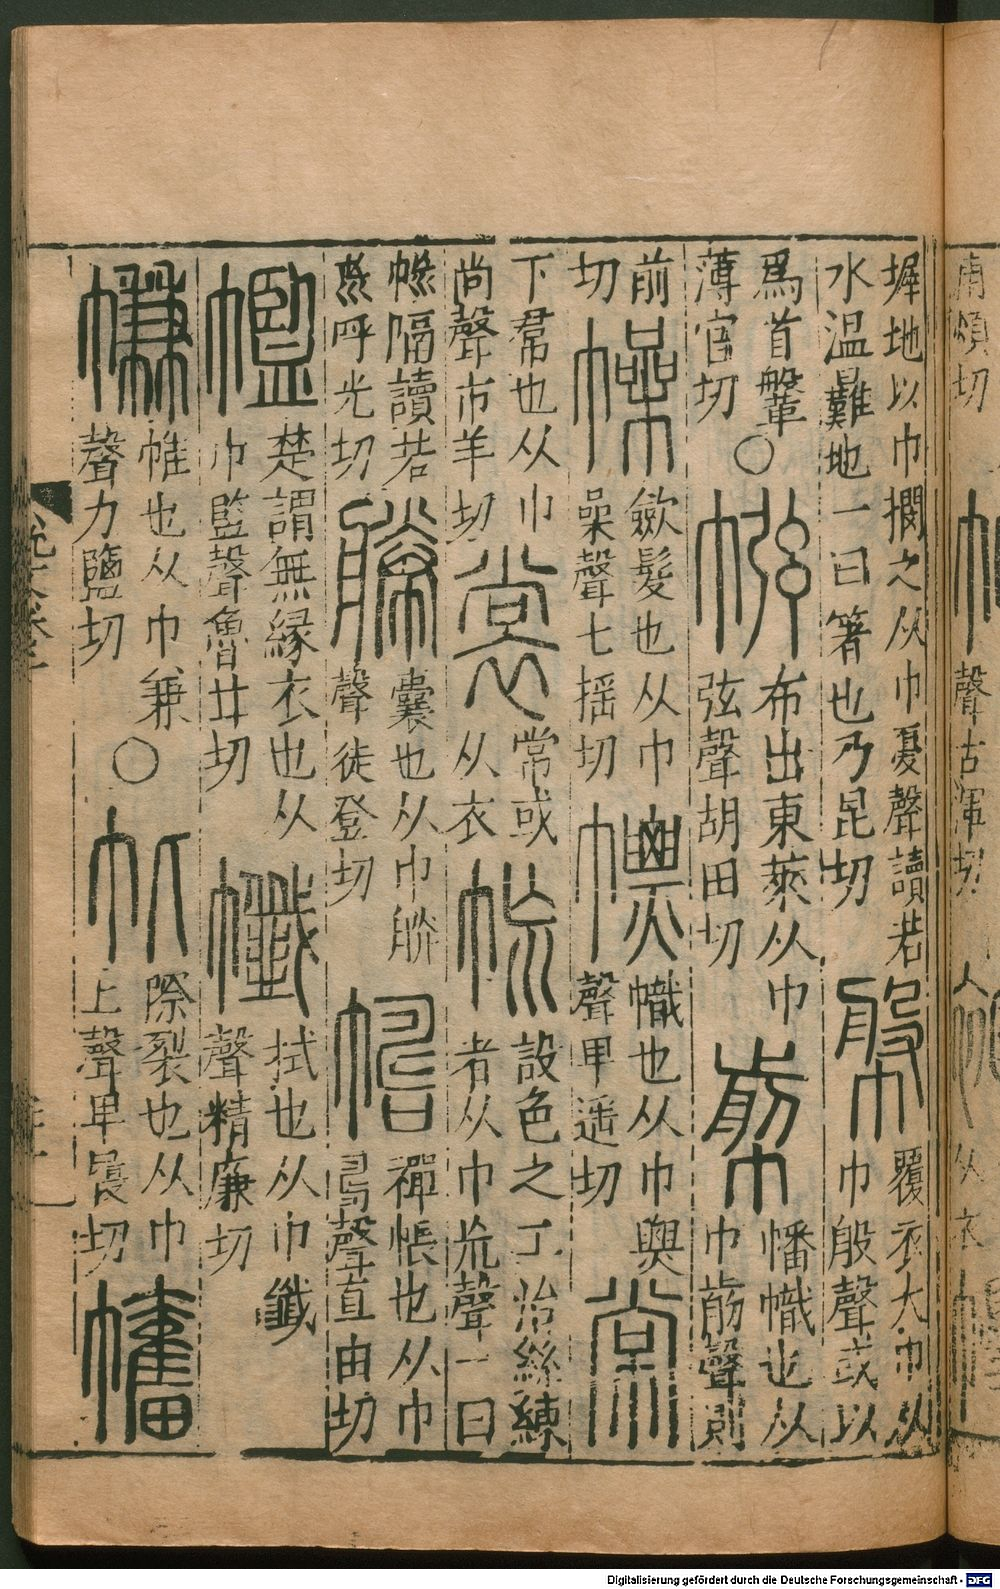 墀地以巾㨝之从巾𡕢聲讀若
水温㬮地一曰箸也乃昆切
幋
覆衣大巾从
巾般聲或以
爲首鞶
薄官切
○
㡉
布出東萊从巾
弦聲胡田切
㡐
幡幟也从
巾前聲則
前
切
幧
斂髮也从巾
喿聲七摇切
幖
幟也从巾䙳
聲甲遥切
常
下帬也从巾
尚聲市羊切
裳
常或
从衣
㡆
設色之工治絲練
者从巾㡆聲一曰
㡆隔讀若
㡆呼光切
幐
囊也从巾朕
聲徒登切
幬
禪帳也从巾
𠷎聲直由切
㡮
楚謂無緣衣也从
巾監聲魯甘切
㡨
拭也从巾韱
聲精廉切
㡘
帷也从巾兼
聲力鹽切
○
㡜
際裂也从巾
上聲
切
幡
聲古渾切
从衣
Digitalisierung gefördert durch die Deutsche Forschungsgemeinschaft - DFG